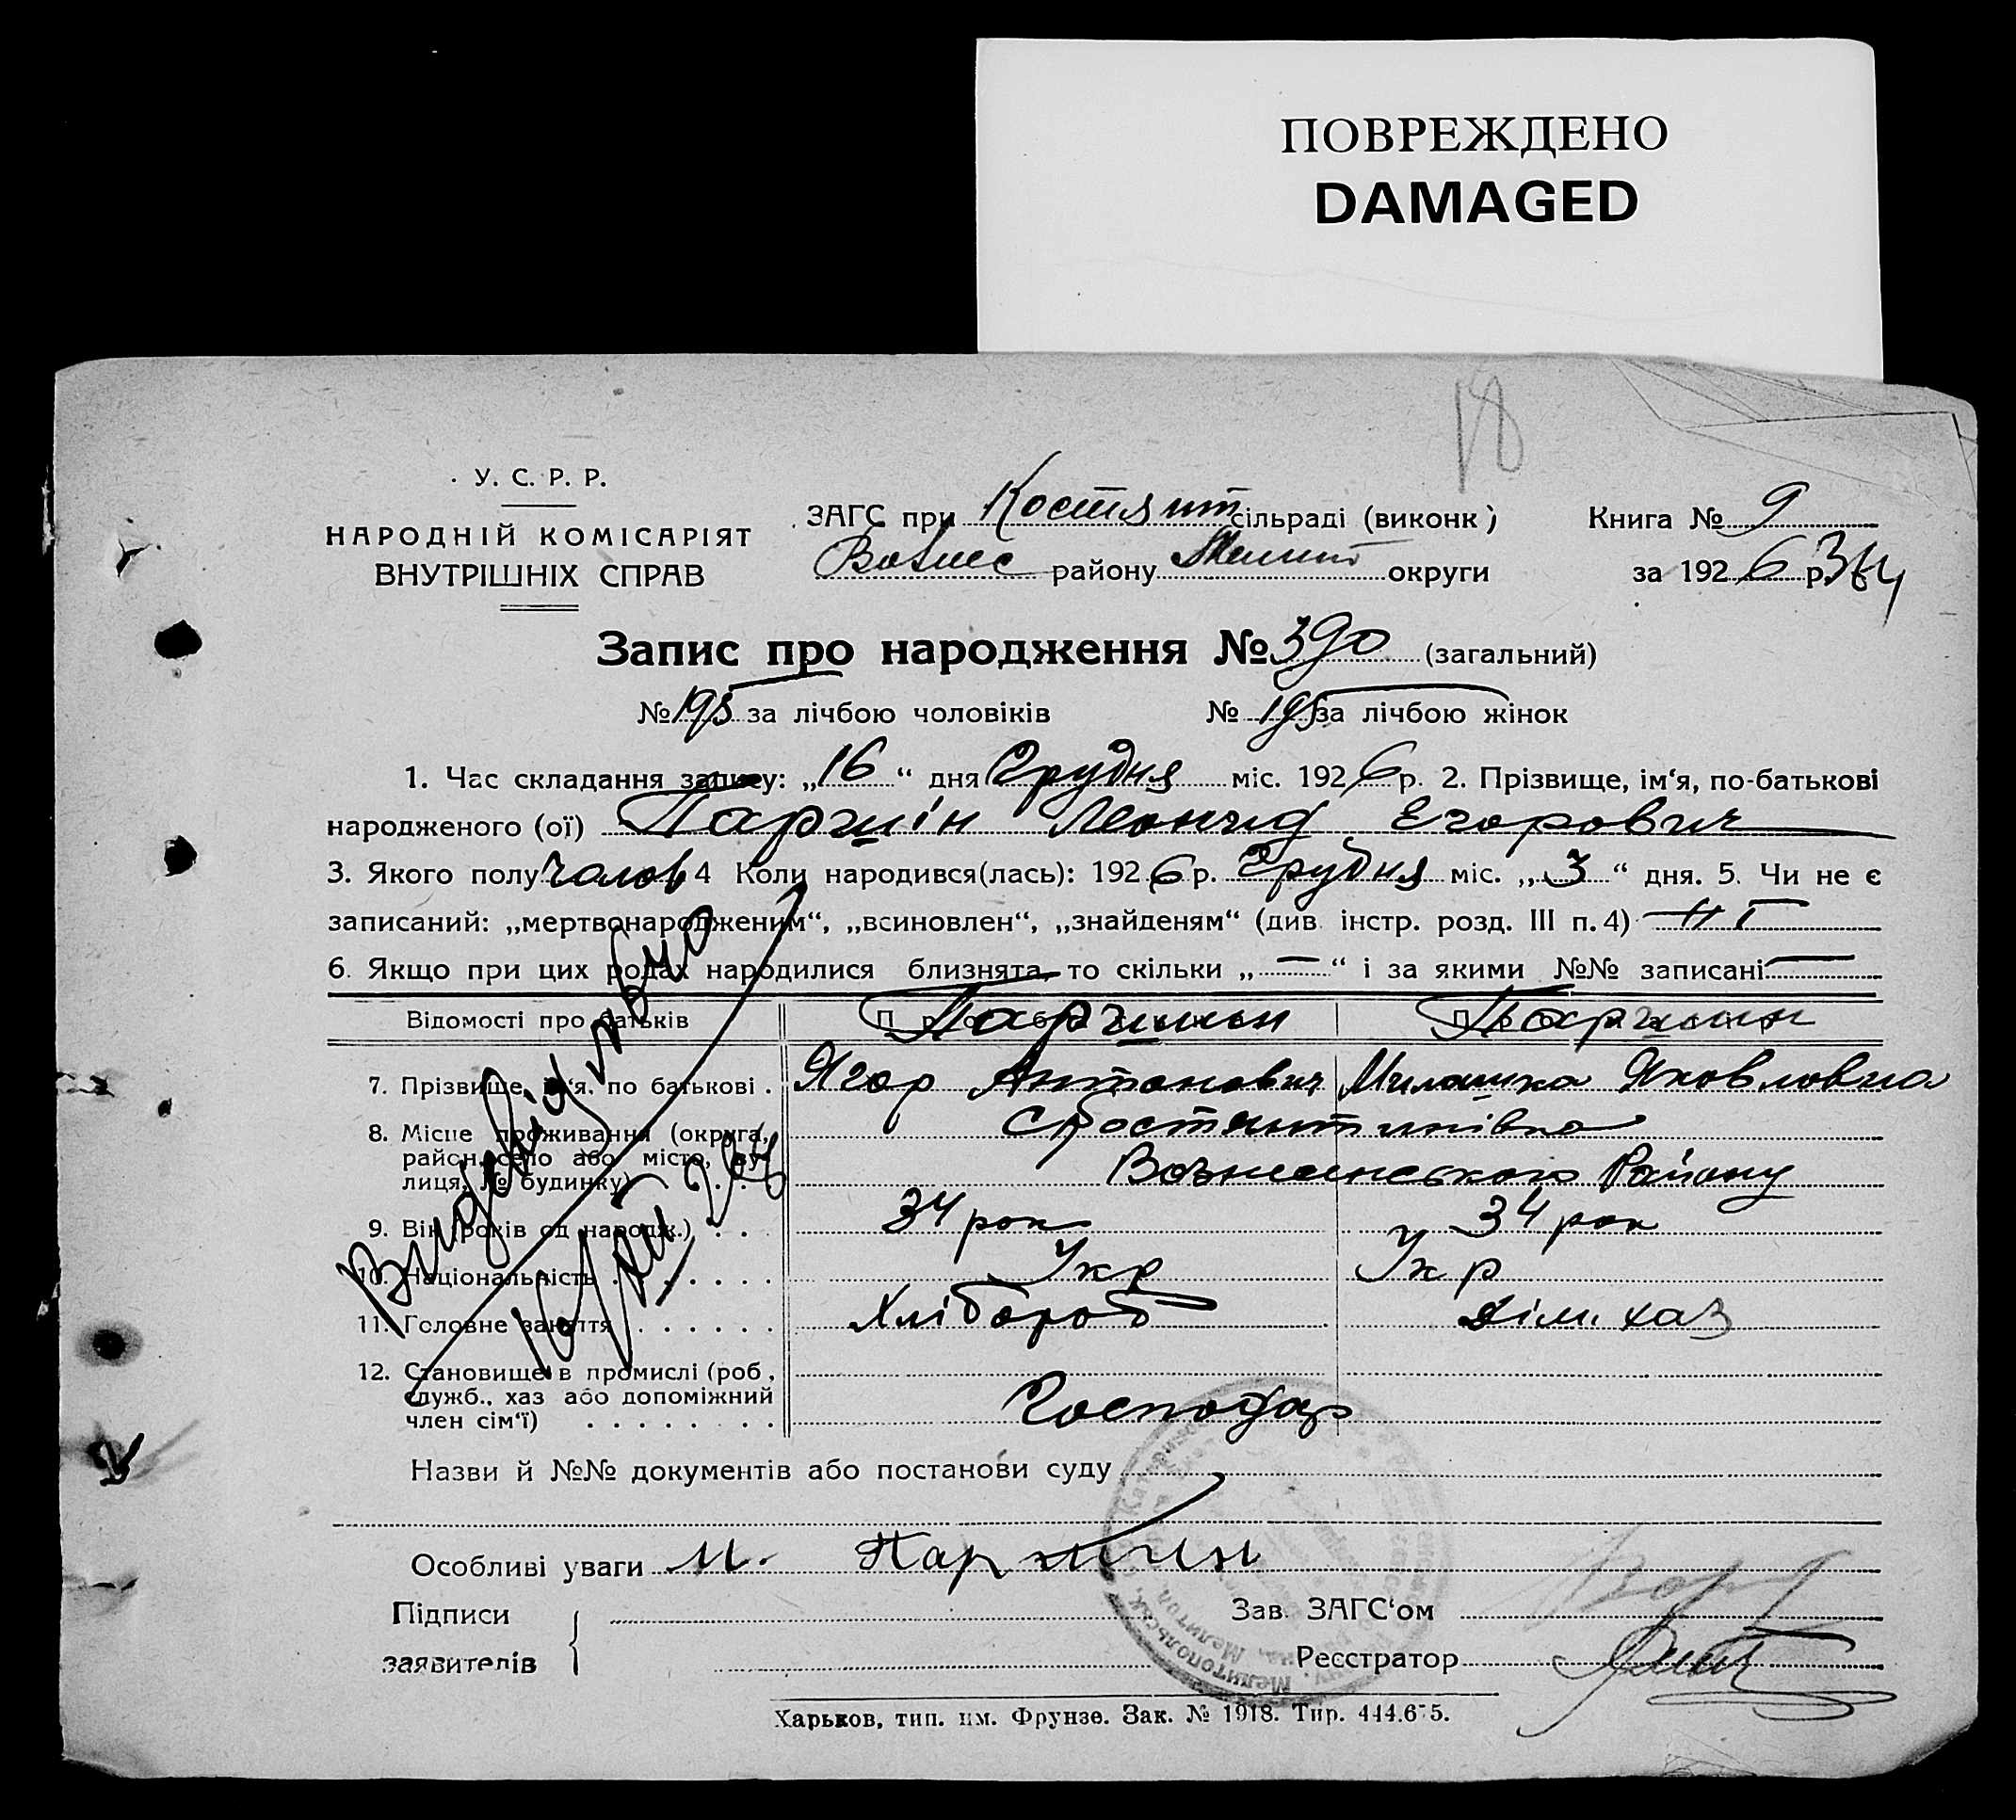 ПОВРЕЖДЕНО
DAMAGED
18
У. С. Р. Р.
НАРОДНІЙ КОМІСАРІЯТ
ВНУТРІШНІХ СПРАВ
ЗАГС при Костянт сільраді (виконк) Книга № 9
Вознес району Меліт округи за 1926 р. 364
Запис про народження № 390 (загальний)
№ 195 за лічбою чоловіків № 195 за лічбою жінок
1. Час складання запису: „16“ дня Грудня міс. 1926 р. 2. Прізвище, ім‘я, по-батькові
народженого (ої) Паршін Леонид Егорович
3. Якого полу чолов 4 Коли народився(лась): 1926 р. Грудня міс. „3“ дня. 5. Чи не є
записаний: „мертвонародженим“, „всиновлен“, „знайденям“ (див. інстр. розд. III п. 4)
6. Якщо при цих родах народилися близнята, то скільки „—“ і за якими №№ записані —
Відомості про батьків Паршин Паршин
7. Прізвище, ім‘я, по батькові . Ягор Антонович Милашка Яковловна
8. Місце проживання (округа, Костянтинівка
район, село або місто, ву-
лиця, № будинку) Вознесенського Району
9. Вік (років од народж.) . . 34 рок 34 рок
10. Національність . . . . . . . Укр Укр
11. Головне заняття . . . . . . Хлібороб Дім. хаз
12. Становище в промислі (роб.,
служб., хаз або допоміжний
член сім‘ї) . . . . . . . . Господар
Назви й №№ документів або постанови суду
Особливі уваги М. Паршин
Підписи
заявителів
Зав. ЗАГС‘ом
Реєстратор
Харьков, тип. им. Фрунзе. Зак. № 1918. Тир. 444.675.